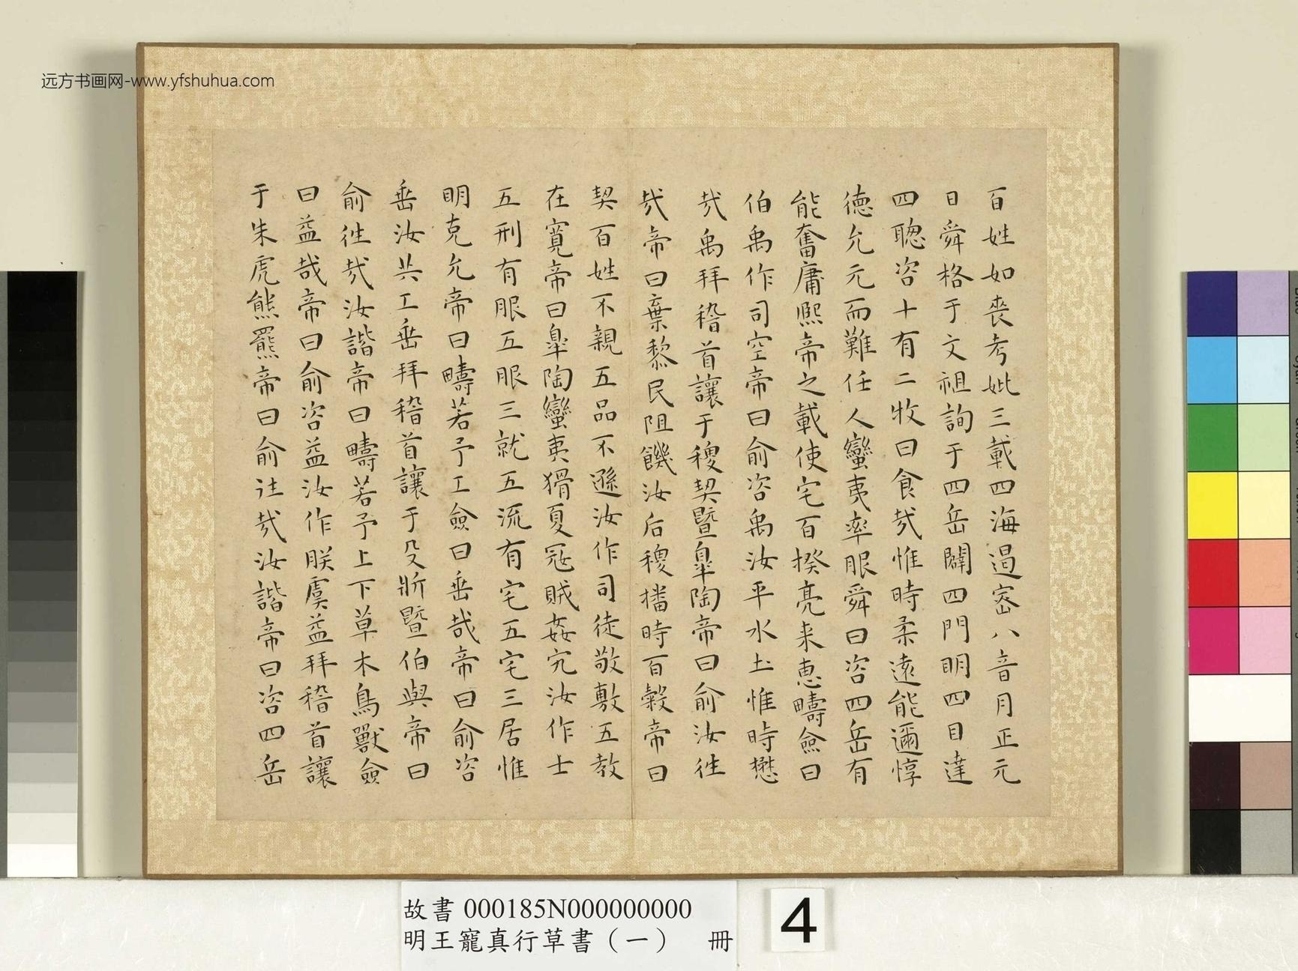 远方书画网-www.yfshuhua.com
百姓如喪考妣三載四海遏密八音月正元
日舜格于文祖詢于四岳闢四門明四目達
四聰咨十有二牧曰食哉惟時柔遠能邇惇
德允元而難任人蠻夷率服舜曰咨四岳有
能奮庸熙帝之載使宅百揆亮来惠疇僉曰
伯禹作司空帝曰俞咨禹汝平水土惟時懋
哉禹拜稽首讓于稷契暨皐陶帝曰俞汝往
哉帝曰棄黎民阻饑汝后稷播時百穀帝曰
契百姓不親五品不遜汝作司徒敬敷五教
在寬帝曰皐陶蠻夷猾夏冦賊姦宄汝作士
五刑有服五服三就五流有宅五宅三居惟
明克允帝曰疇若予工僉曰垂哉帝曰俞咨
垂汝共工垂拜稽首讓于殳斨暨伯與帝曰
俞往哉汝諧帝曰疇若予上下草木鳥獸僉
曰益哉帝曰俞咨益汝作朕虞益拜稽首讓
于朱虎熊羆帝曰俞往哉汝諧帝曰咨四岳
故書 000185N000000000
明王寵真行草書（一） 冊
4